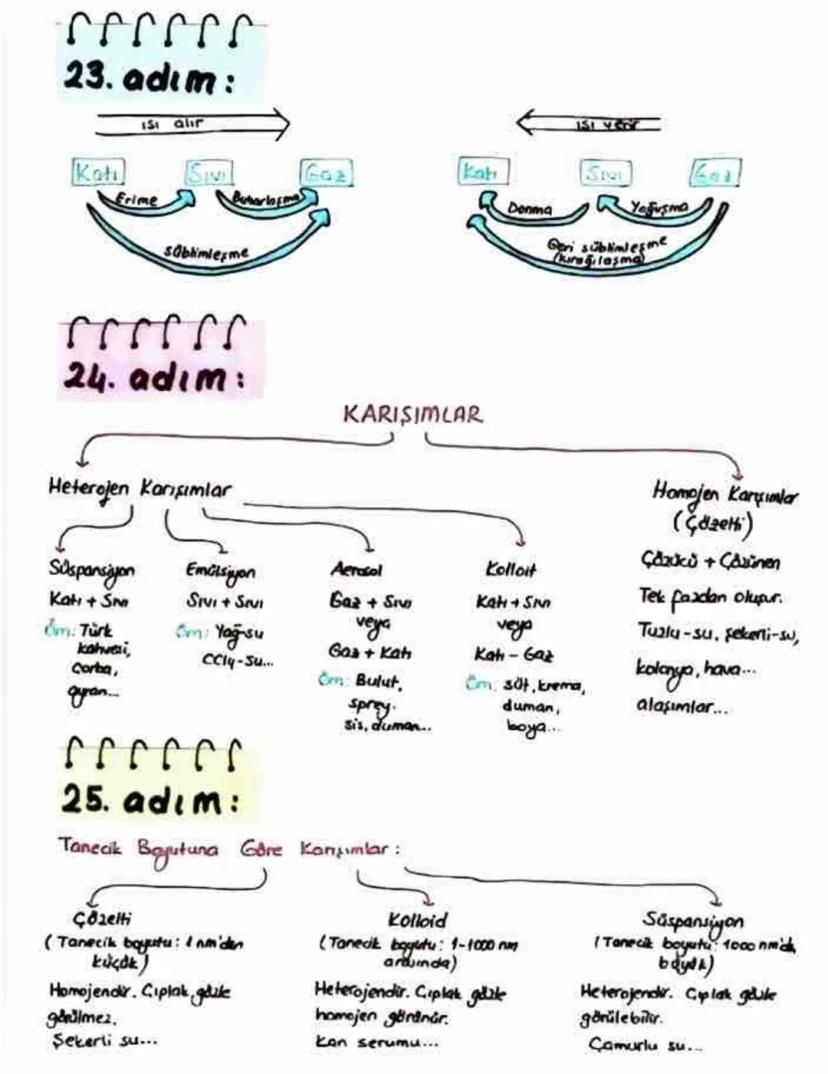 23. adım:
ısı alır
ısı verir
Katı Sıvı Gaz
Katı Sıvı Gaz
Erime Buharlaşma
Donma Yoğuşma
Süblimleşme
Geri süblimleşme
(kırağılaşma)
24. adım:
KARIŞIMLAR
Heterojen Karışımlar
Süspansiyon
Katı + Sıvı
Örn: Türk
kahvesi,
çorba,
ayran...
Emülsiyon
Sıvı + Sıvı
Örn: Yağ-su
CCl4-su...
Aerosol
Gaz + Sıvı
veya
Gaz + Katı
Örn: Bulut,
sprey.
sis, duman...
Kolloit
Katı + Sıvı
veya
Katı - Gaz
Örn: süt, krema,
duman,
boya...
Homojen Karışımlar
(Çözelti)
Çözücü + Çözünen
Tek fazdan oluşur.
Tuzlu-su, şekerli-su,
kolonya, hava...
alaşımlar...
25. adım:
Tanecik Boyutuna Göre Karışımlar:
Çözelti
(Tanecik boyutu: 1 nm'den
küçük)
Homojendir. Çıplak gözle
görülmez.
Şekerli su...
Kolloid
(Tanecik boyutu: 1-1000 nm
arasında)
Heterojendir. Çıplak gözle
homojen görünür.
kan serumu...
Süspansiyon
(Tanecik boyutu: 1000 nm'den
büyük)
Heterojendir. Çıplak gözle
görülebilir.
Çamurlu su...